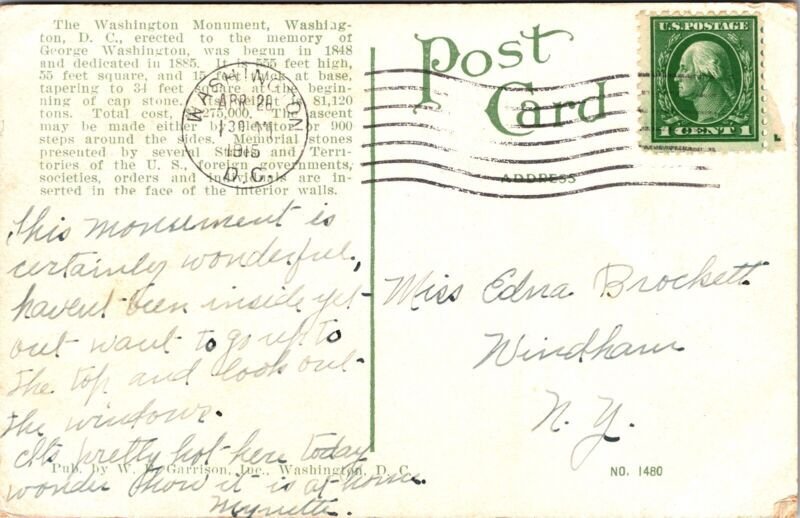 The Washington Monument, Washing-
ton, D. C., erected to the memory of
George Washington, was begun in 1848
and dedicated in 1885. It is 555 feet high,
55 feet square, and 15 feet thick at base,
tapering to 34 feet square at the begin-
ning of cap stone. 81,120
tons. Total cost, $1,275,000. The ascent
may be made either by elevator or 900
steps around the sides. Memorial stones
presented by several States and Terri-
tories of the U. S., foreign governments,
societies, orders and individuals are in-
serted in the face of the interior walls.
WASHINGTON
APR 26
1915
D.C.
Post
Card
U.S. POSTAGE
1 CENT 1
ADDRESS
This monument is
certainly wonderful,
havent been inside yet
but want to go up to
the top and look out
the windows.
Its pretty hot here today
wonder how it is at home.
Myrette.
Miss Edna Brockett
Windham
N. Y.
Pub. by W. B. Garrison, Inc., Washington, D. C.
NO. 1480